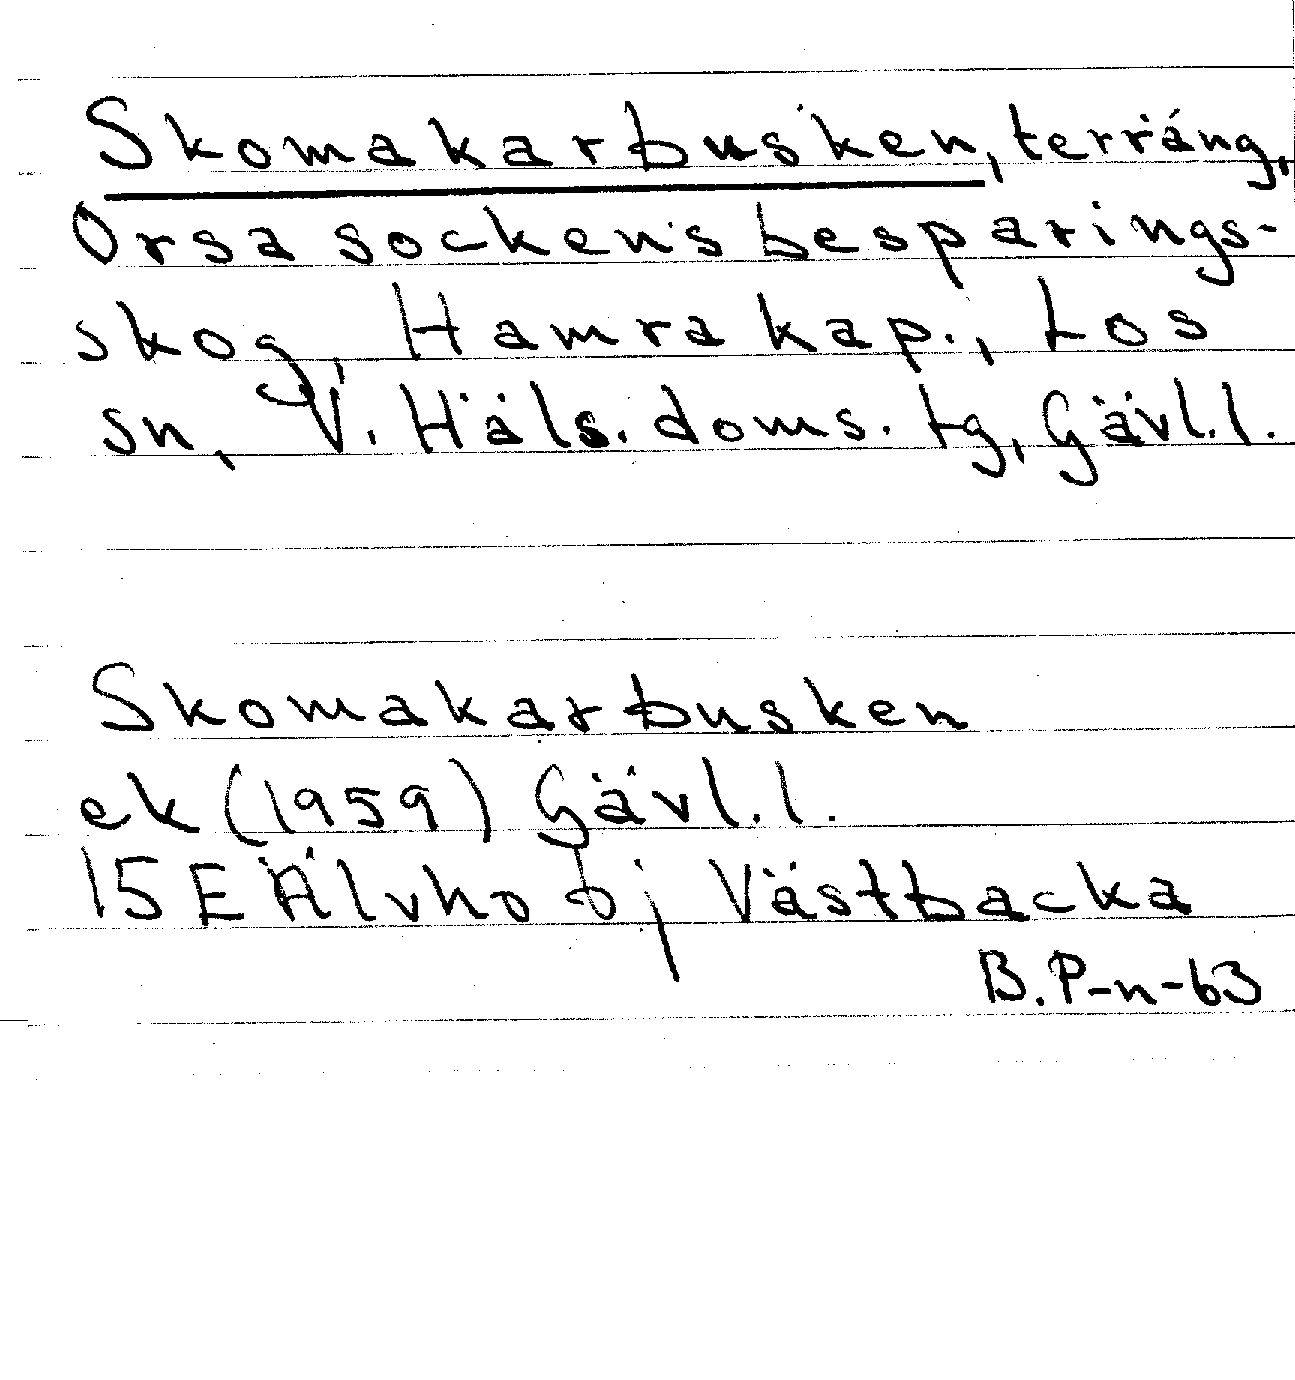 Skomakarbusken, terräng,
Orsa sockens besparings-
skog, Hamra kap., Los
sn, V. Häls. doms. tg, Gävl. l.
Skomakarbusken
ek (1959) Gävl. l.
15E Älvho b; Västbacka
B. P-n-63